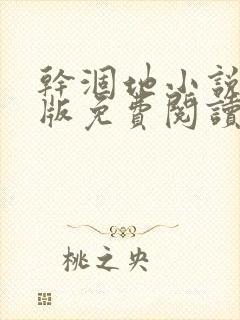 幹涸地小說
版免費閱讀
桃之央